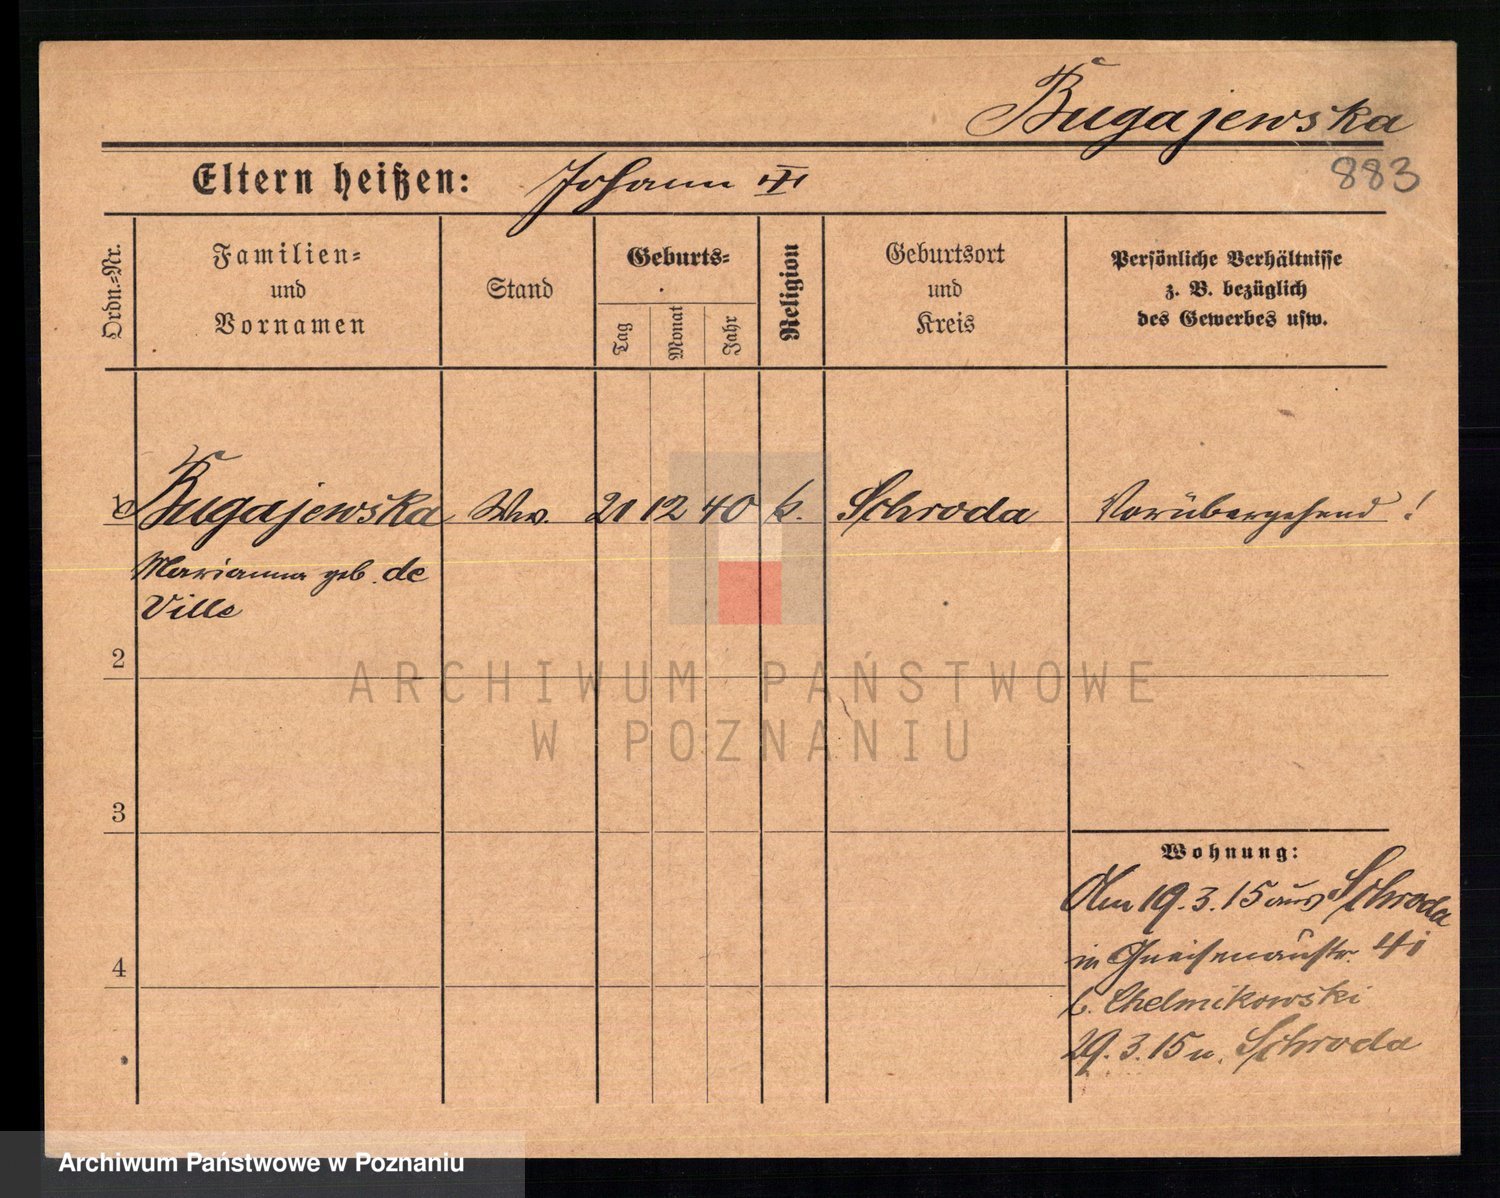 Bugajewska
883
Eltern heißen: Johann III
Ordn.=Nr.
Familien=
und
Vornamen
Stand
Geburts=
Tag
Monat
Jahr
Religion
Geburtsort
und
Kreis
Persönliche Verhältnisse
z. B. bezüglich
des Gewerbes usw.
1 Bugajewska Ww. 21 12 40 k. Schroda Vorübergehend!
Marianna geb. de
Ville
2
3
4
Wohnung:
Am 19.3.15 aus Schroda
in Gneisenaustr. 4
b. Chelmikowski
29.3.15 n. Schroda
ARCHIWUM PAŃSTWOWE
W POZNANIU
Archiwum Państwowe w Poznaniu